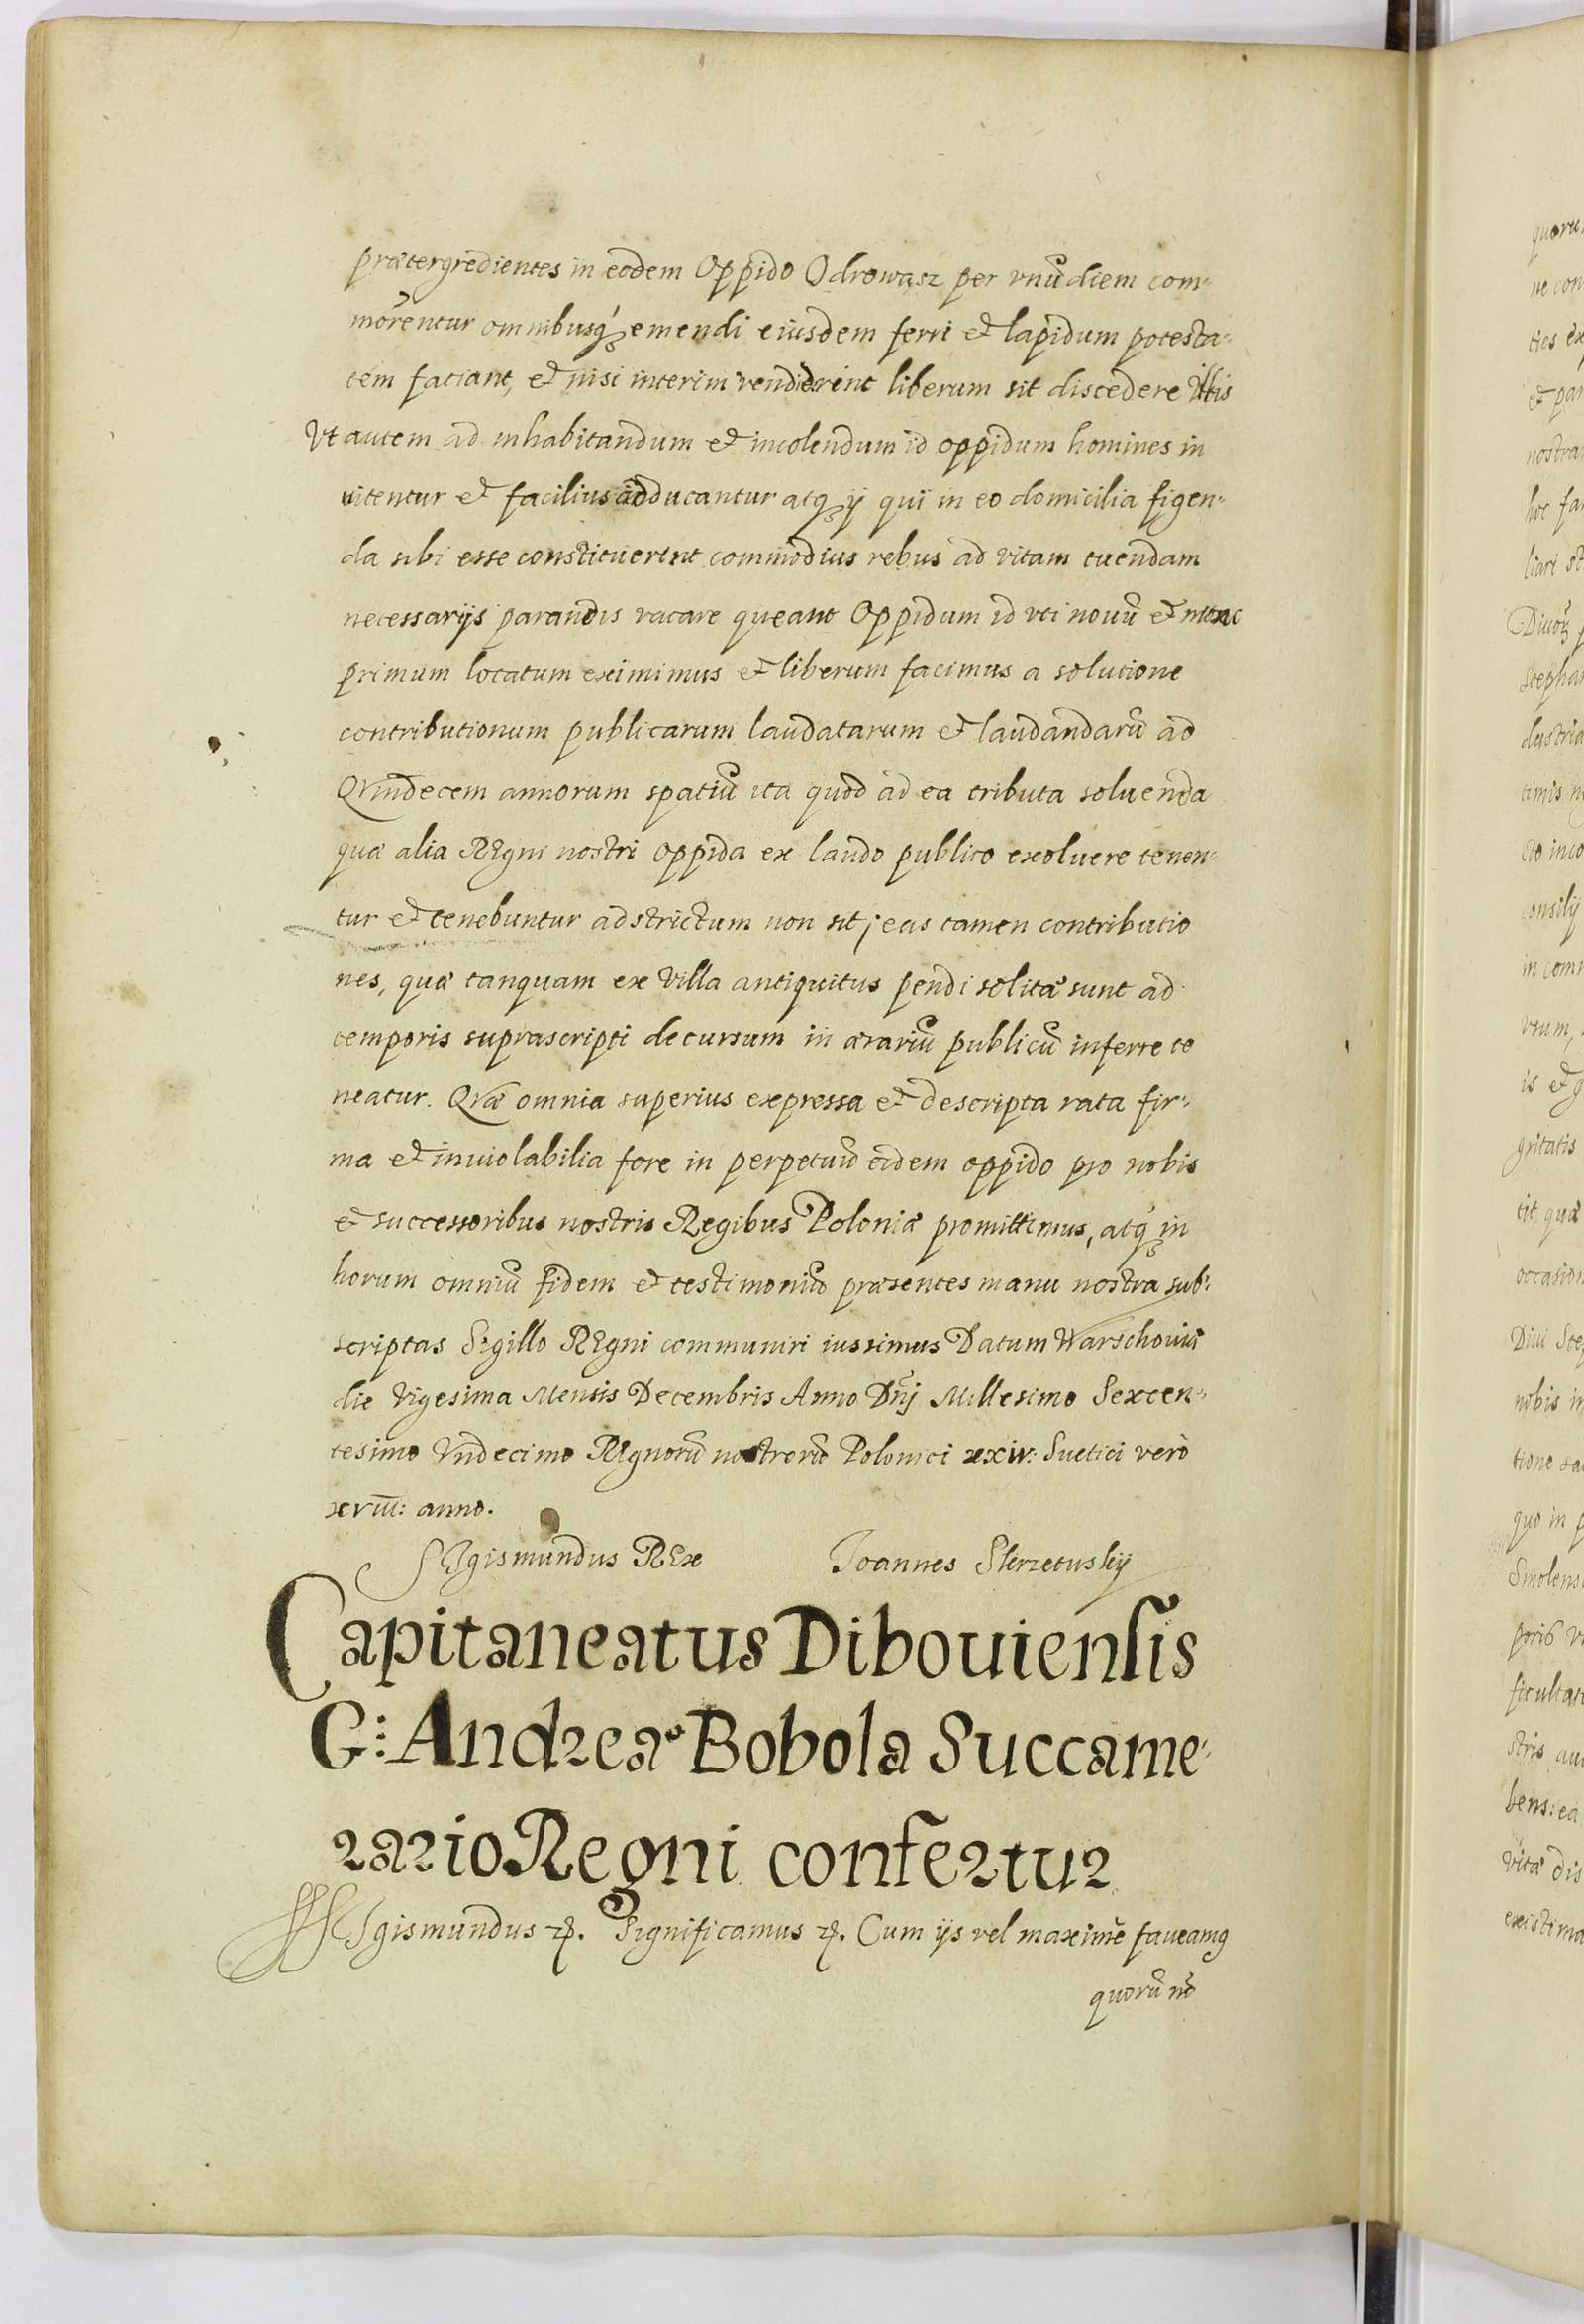 prætergredientes in eodem Oppido Odrowąsz per vnũ diem com-
morentur omnibusq́ꝫ emendi eiusdem ferri et lapidum potesta-
tem faciant, et nisi interim vendiderint liberum sit discedere illis
Vt autem ad inhabitandum et incolendum id oppidum homines in
uitentur et facilius adducantur atqꝫ ij qui in eo domicilia figen-
da sibi esse constituerint commodius rebus ad vitam tuendam
necessarijs parandis vacare queant Oppidum id vti nouũ et nunc
primum locatum eximimus et liberum facimus a solutione
contributionum publicarum laudatarum et laudandarũ ad
Quindecem annorum spatiũ ita quod ad ea tributa soluenda
quæ alia REgni nostri oppida ex laudo publico exoluere tenen-
tur et tenebuntur adstrictum non sit; eas tamen contributio
nes, quæ tanquam ex Villa antiquitus pendi solitæ sunt ad
temporis suprascripti decursum in ærariũ publicũ inferre te
neatur. Quæ omnia superius expressa et descripta rata fir-
ma et inuiolabilia fore in perpetuũ eidem oppido pro nobis
et successoribus nostris Regibus Poloniæ promittimus, atq́ꝫ in
horum omniũ fidem et testimoniũ præsentes manu nostra sub-
scriptas Sigillo REgni communiri iussimus Datum Warschouiæ
die Vigesima Mensis Decembris Anno Dñj Millesimo Sexcen-
tesimo Vndecimo REgnorũ nostrorũ Polonici xxiv: Suetici verò
xviii: anno.
SIgismundus REx Joannes Skrzetuskij
Capitaneatus Dibouiensis
G: Andreæ Bobola Succame-
rario Regni confertur
SIgismundus ꝛꝑ. Significamus ꝛꝑ. Cum ijs vel maximè faveamꝰ
quorũ
quoru
ne con
ties ex
et par
nostra
hoc fa
Stephan
dustria
timis
consilij
in com
vsum,
is et
gritatis
tit, quæ
occasion
Diui Ste
nobis in
tione
quo in p
Smolens
ficultat
stris
bens: ea
vitæ dis
existima